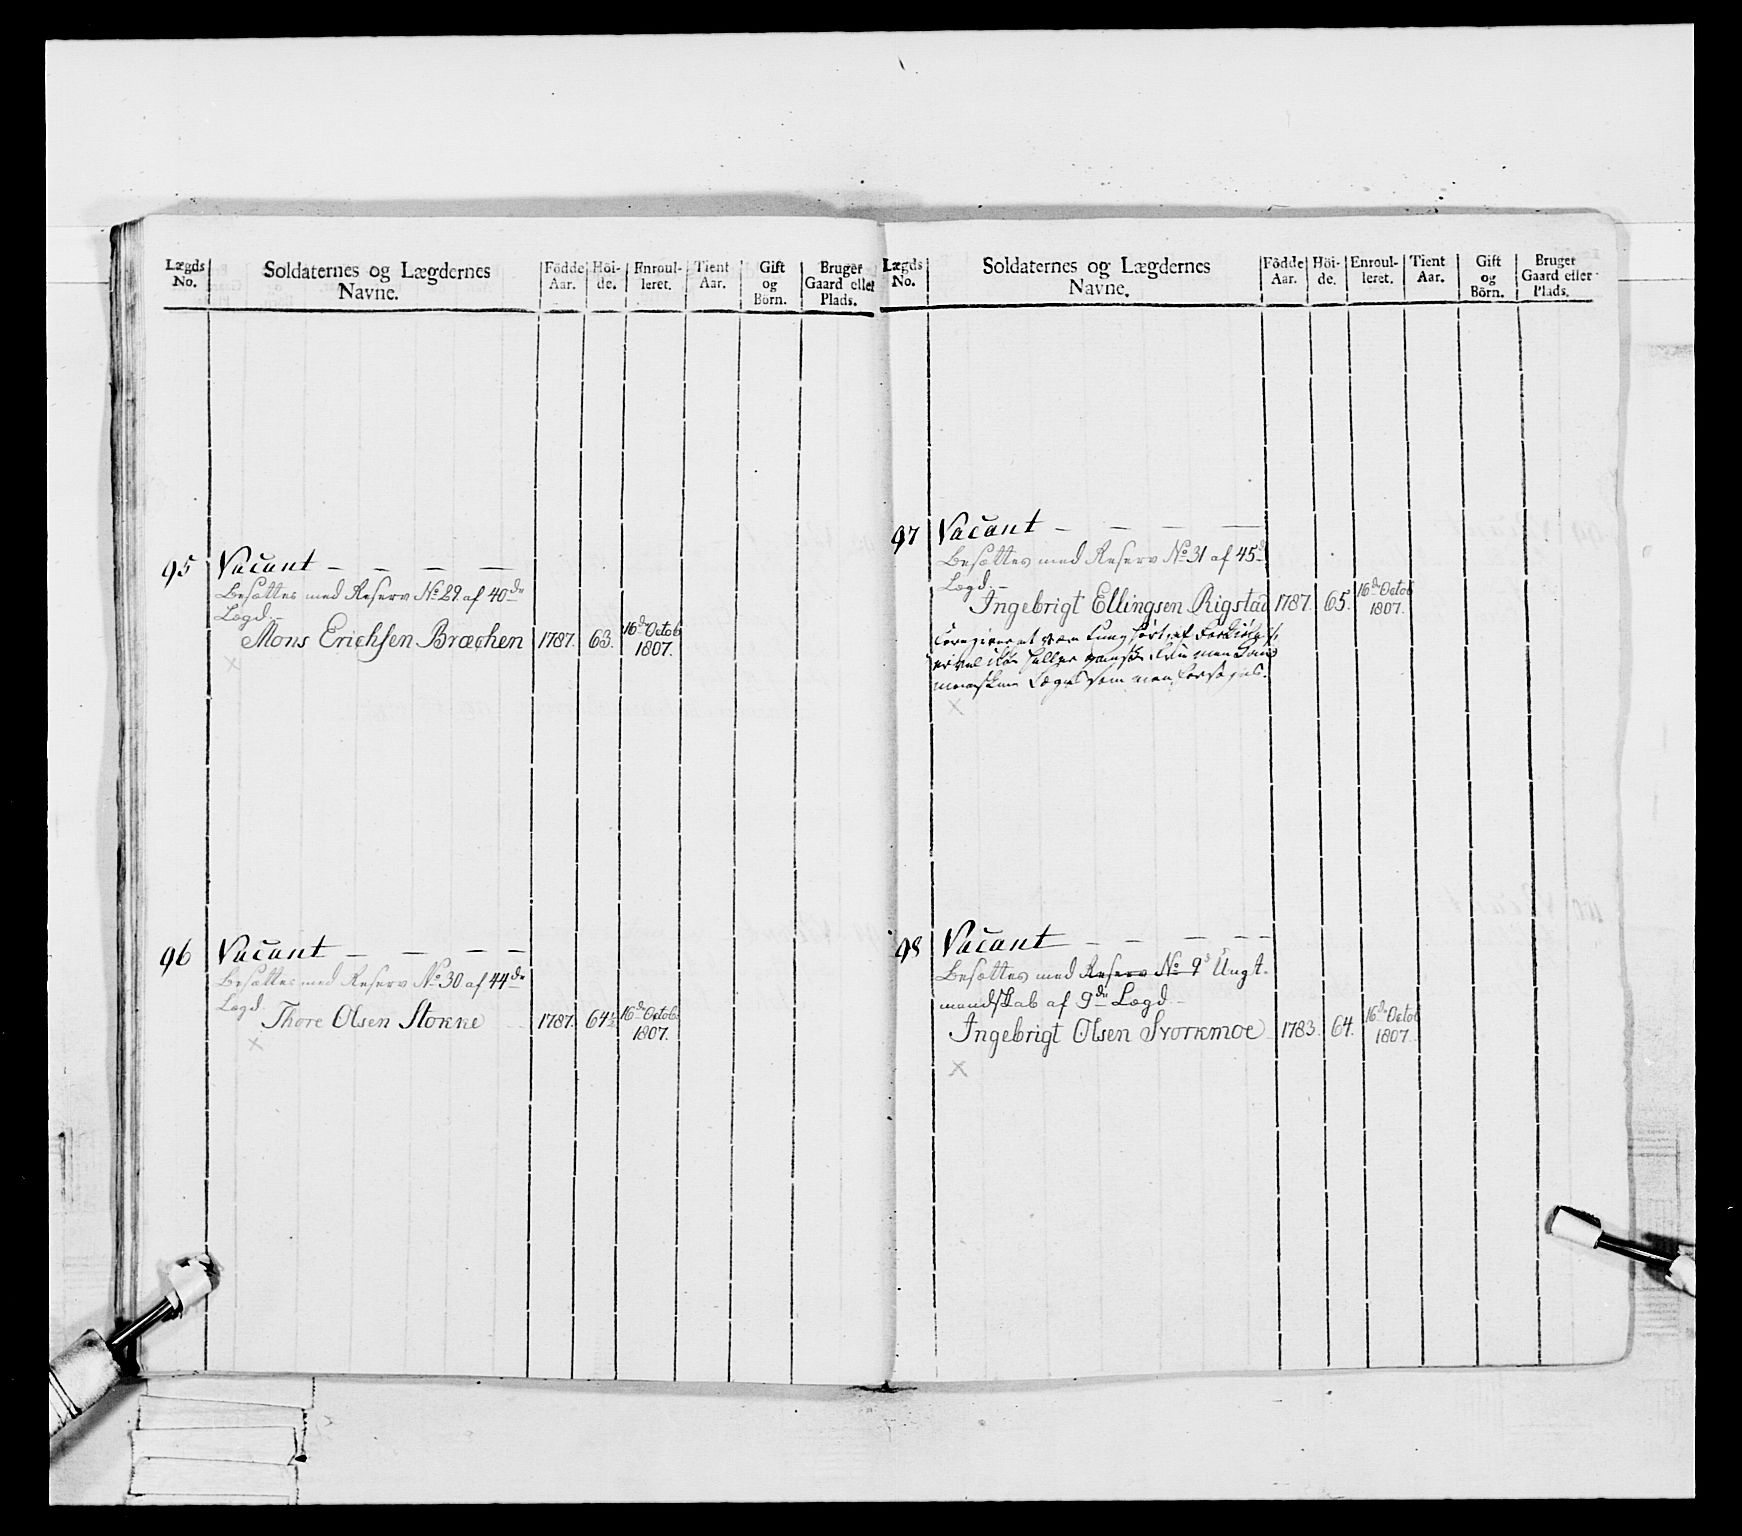 Lægds No.
Soldaternes og Lægdernes Navne.
Födde Aar.
Höi- de.
Enroul- leret.
Tient Aar.
Gift og Börn.
Bruger Gaard eller Plads.
95 Vacant — — — —
Besættes med Reserv No 29 af 40de
Lægd.—
Mons Erichsen Bræchen 1787. 63. 16de Octob 1807.
×
96 Vacant — — — —
Besættes med Reserv No 30 af 44de
Lægd
Thore Olsen Stokke 1787. 64½ 16de Octob. 1807.
×
Lægds No.
Soldaternes og Lægdernes Navne.
Födde Aar.
Höi- de.
Enroul- leret.
Tient Aar.
Gift og Börn.
Bruger Gaard eller Plads.
97 Vacant — — — —
Besættes med Reserv No 31 af 45de
Lægd.—
Ingebrigt Ellingsen Rigstad 1787. 65. 16de Octob 1807.
at være tung hørt, af
men
som man
×
98 Vacant — — — — —
Besættes med Reserv No 9s Ungt-
mandskab af 9de Lægd
Ingebrigt Olsen Svorkmoe 1783. 64. 16de Octob 1807.
×